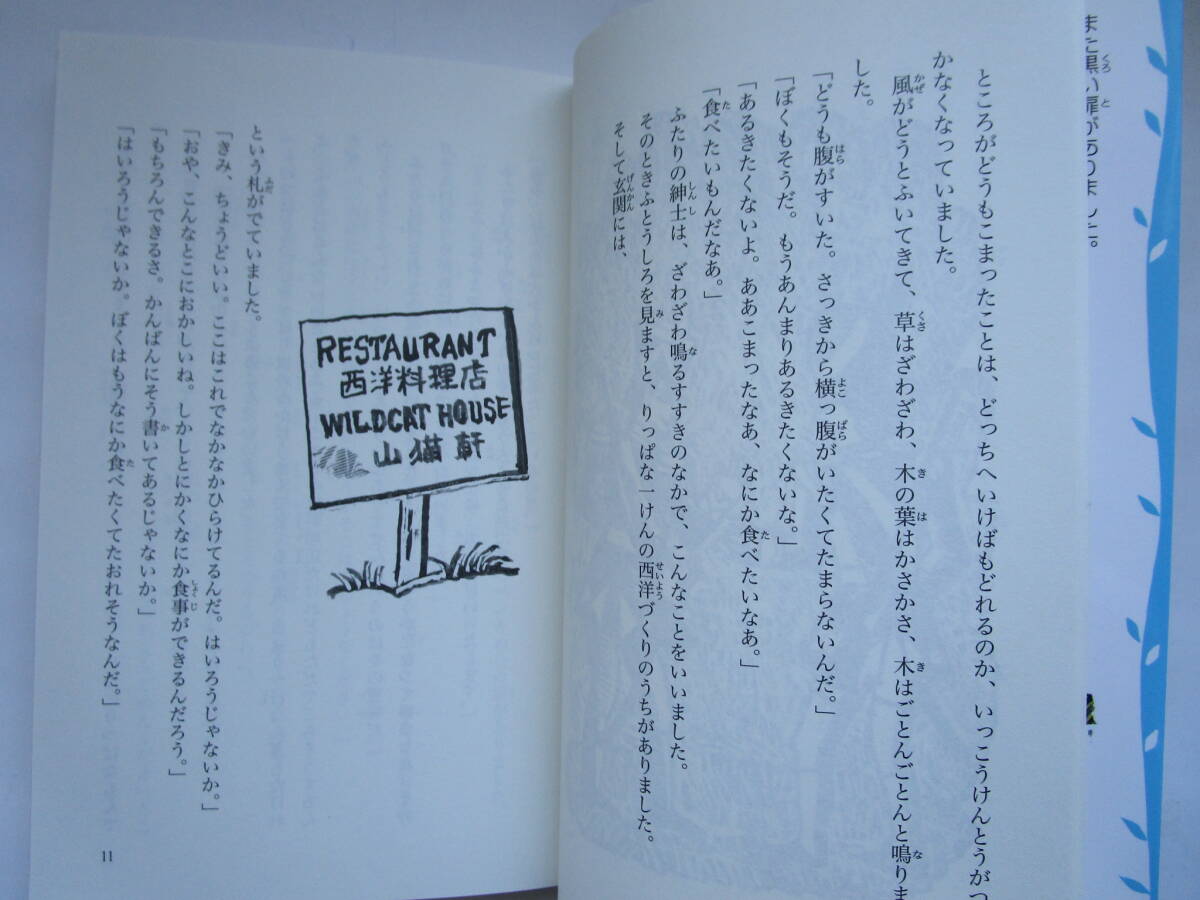 また黒い扉がありました。
ところがどうもこまったことは、どっちへいけばもどれるのか、いっこうけんとうがつ
かなくなっていました。
風がどうとふいてきて、草はざわざわ、木の葉はかさかさ、木はごとんごとんと鳴りま
した。
「どうも腹がすいた。さっきから横っ腹がいたくてたまらないんだ。」
「ぼくもそうだ。もうあんまりあるきたくないな。」
「あるきたくないよ。ああこまったなあ、なにか食べたいなあ。」
「食べたいもんだなあ。」
ふたりの紳士は、ざわざわ鳴るすすきのなかで、こんなことをいいました。
そのときふとうしろを見ますと、りっぱな一けんの西洋づくりのうちがありました。
そして玄関には、
RESTAURANT
西洋料理店
WILDCAT HOUSE
山猫軒
という札がでていました。
「きみ、ちょうどいい。ここはこれでなかなかひらけてるんだ。はいろうじゃないか。」
「おや、こんなとこにおかしいね。しかしとにかくなにか食事ができるんだろう。」
「もちろんできるさ。かんばんにそう書いてあるじゃないか。」
「はいろうじゃないか。ぼくはもうなにか食べたくてたおれそうなんだ。」
11